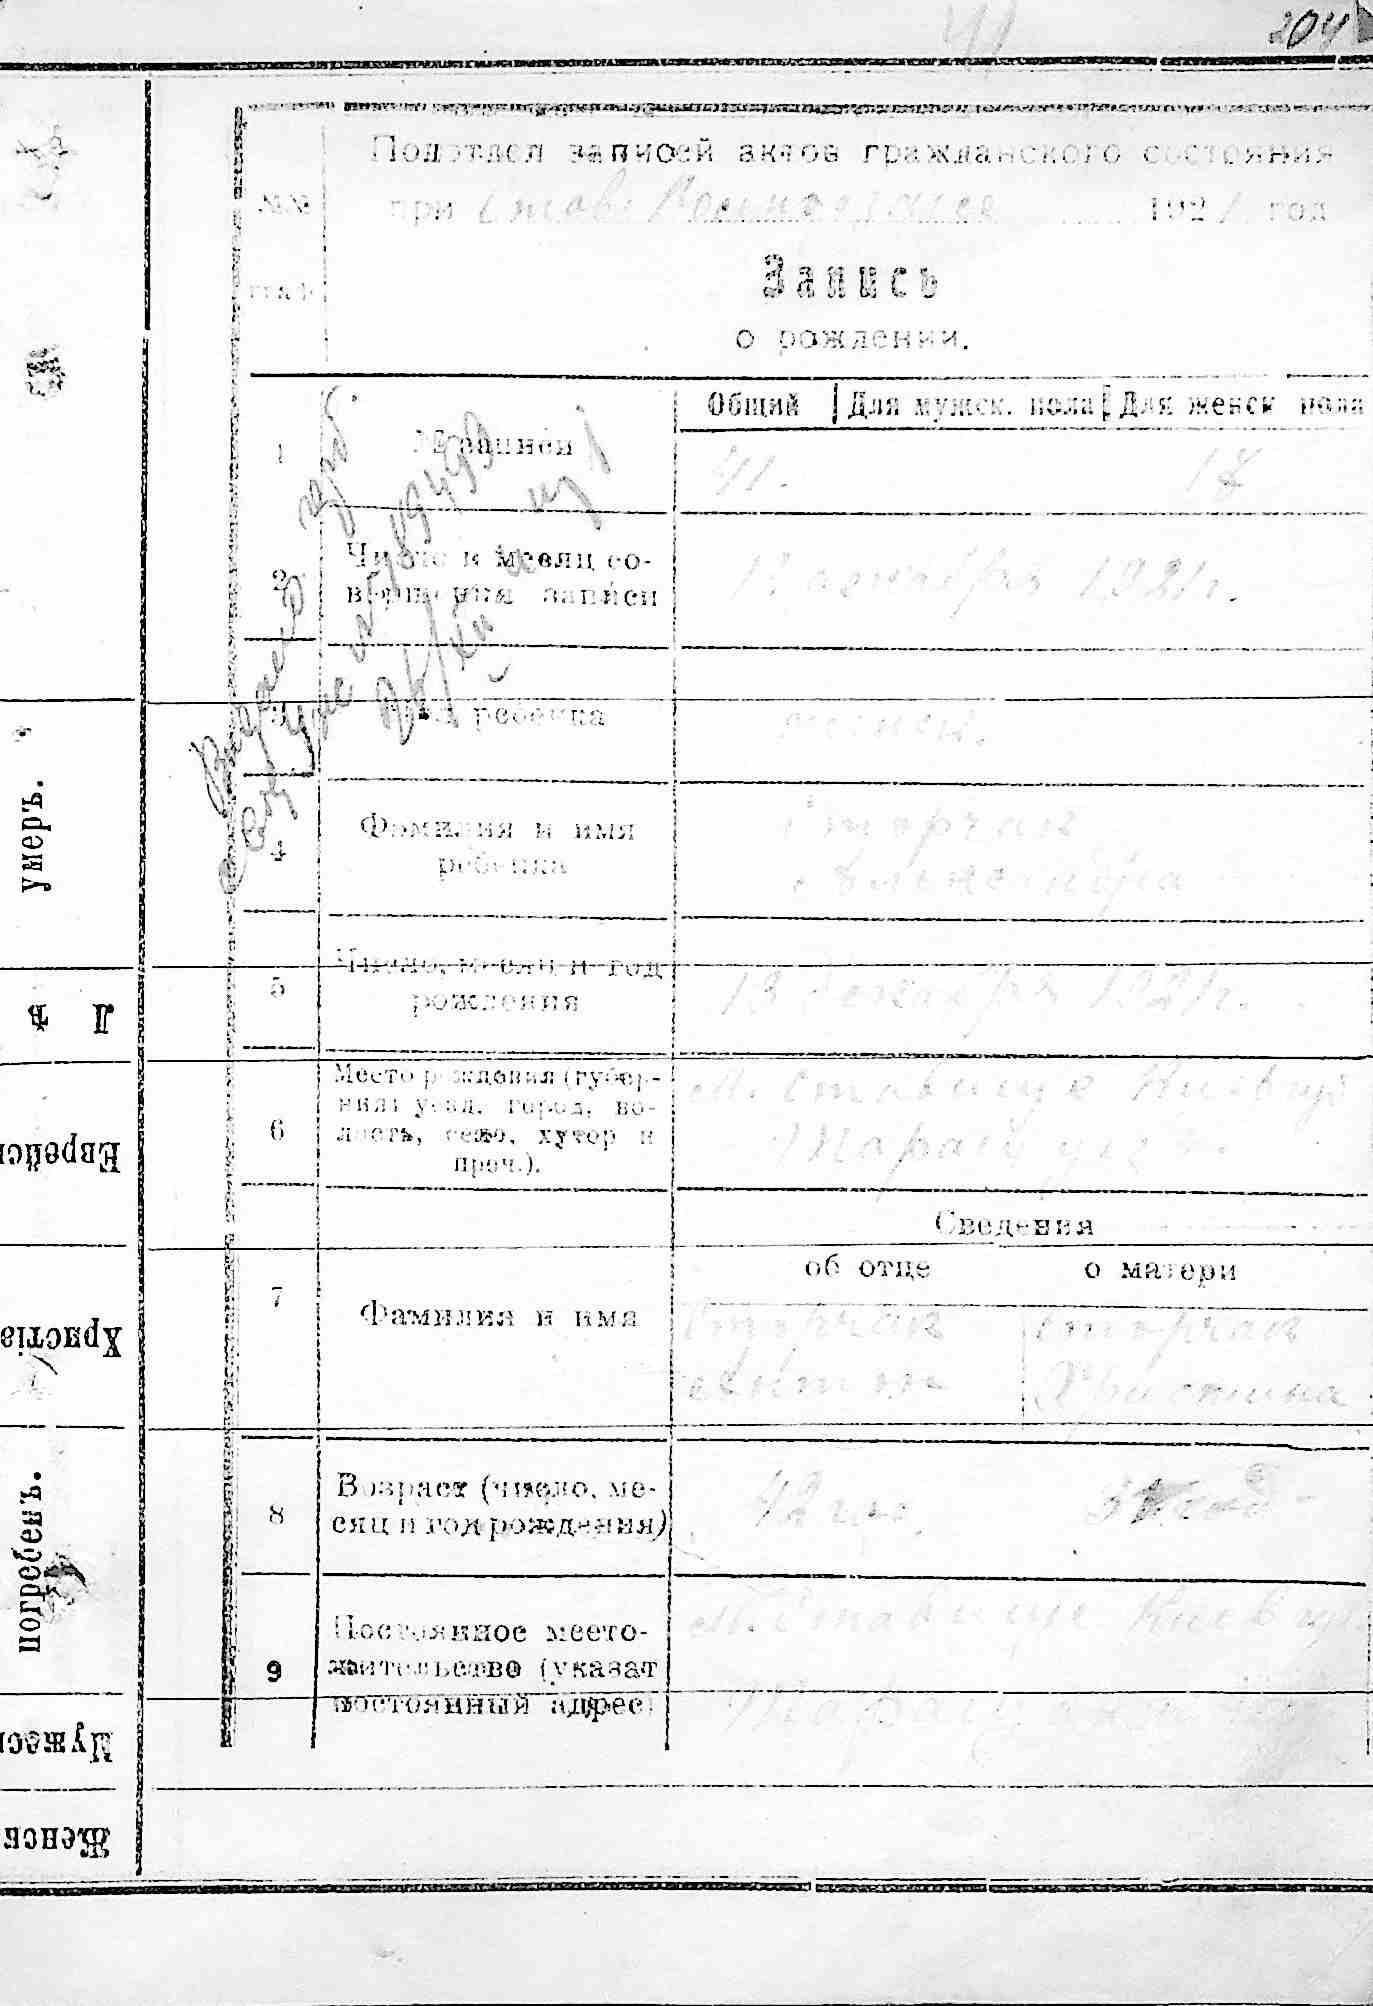 41
204
Подотдел записей актов гражданского состояния
при Став. 1921 год
№№
граф
Запись
о рождении.
Общий Для мужск. пола Для женск пола
1 № записи 41. 17
2 Число и месяц со-
вершения записи декабря 1921 г.
3 Пол ребенка женск.
4 Фамилия и имя
ребенка Сторчак
Александра
5 Число, месяц и год
рождения 13 декабря 1921 г.
6 Место рождения (губер-
ния, уезд, город, во-
лость, село, хутор и
проч.). м. Ставище Киев губ
Таращ уезд.
Сведения
об отце о матери
7 Фамилия и имя Сторчак Сторчак
Антон Христина
8 Возраст (число, ме-
сяц и год рождения) 42
9 Постоянное место-
жительство (указат
постоянный адрес) м. Ставище Киев губ.
Таращан
Выдано
умеръ.
Л ѣ
Еврейск
Христіа
погребенъ.
Мужеск
Женск